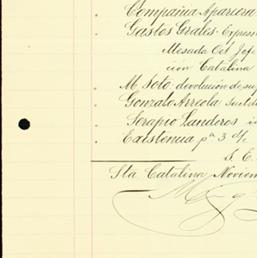 Compañia Aparcera
Gastos Grales. Express
Mesada Oct Jefe
ción Catalina
M. Soto, devolución de su
Gonzalo Arreola Sueldo
Serapio Landeros i
Existencia pª 3 d/c
S. E.
Sta Catalina, Noviem